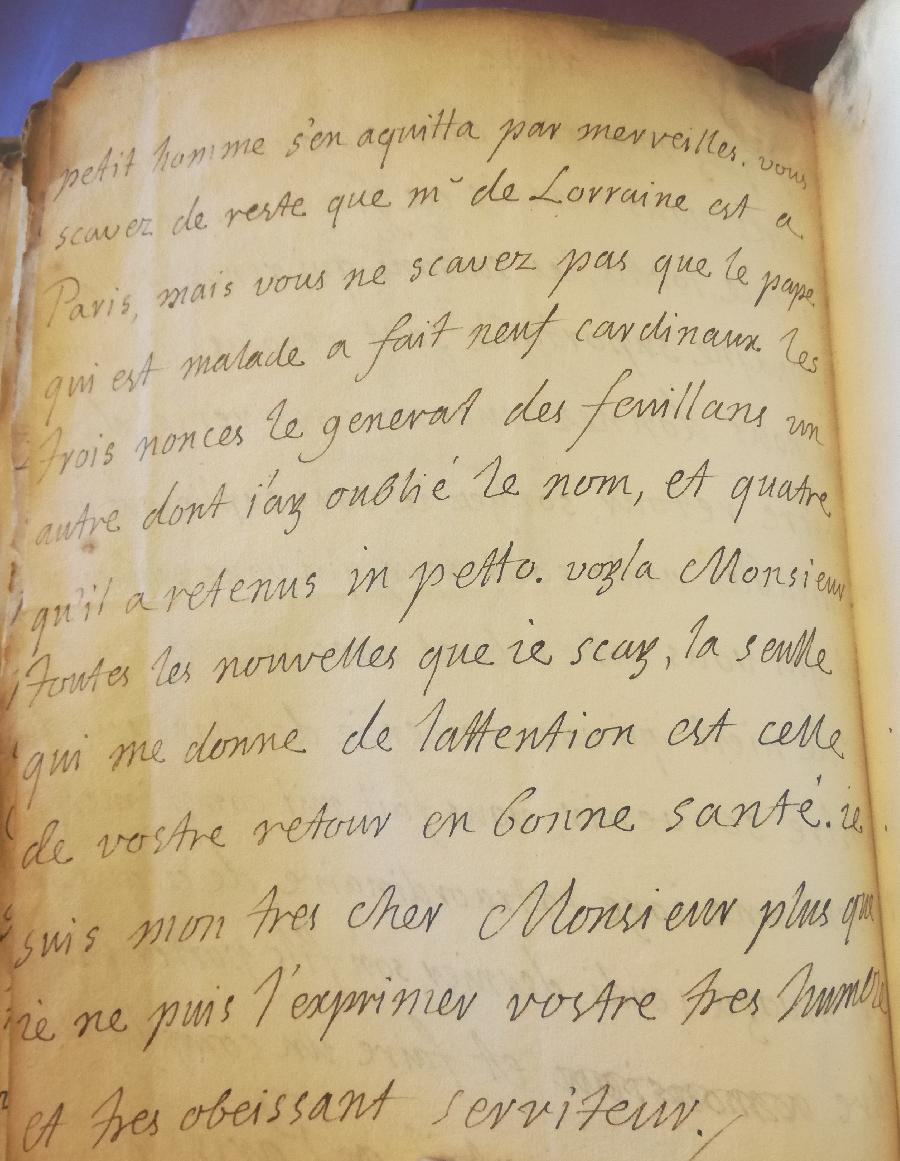 petit homme s'en aquitta par merveilles. vous
scavez de reste que mr de Lorraine est a
Paris, mais vous ne scavez pas que le pape
qui est malade a fait neuf cardinaux les
trois nonces le general des feuillans un
autre dont i'ay oublié le nom, et quatre
qu'il a retenus in petto. voyla Monsieur
toutes les nouvelles que ie scay, la seulle
qui me donne de lattention est celle
de vostre retour en bonne santé. ie
suis mon tres cher Monsieur plus que
ie ne puis l'exprimer vostre tres humble
et tres obeissant serviteur.